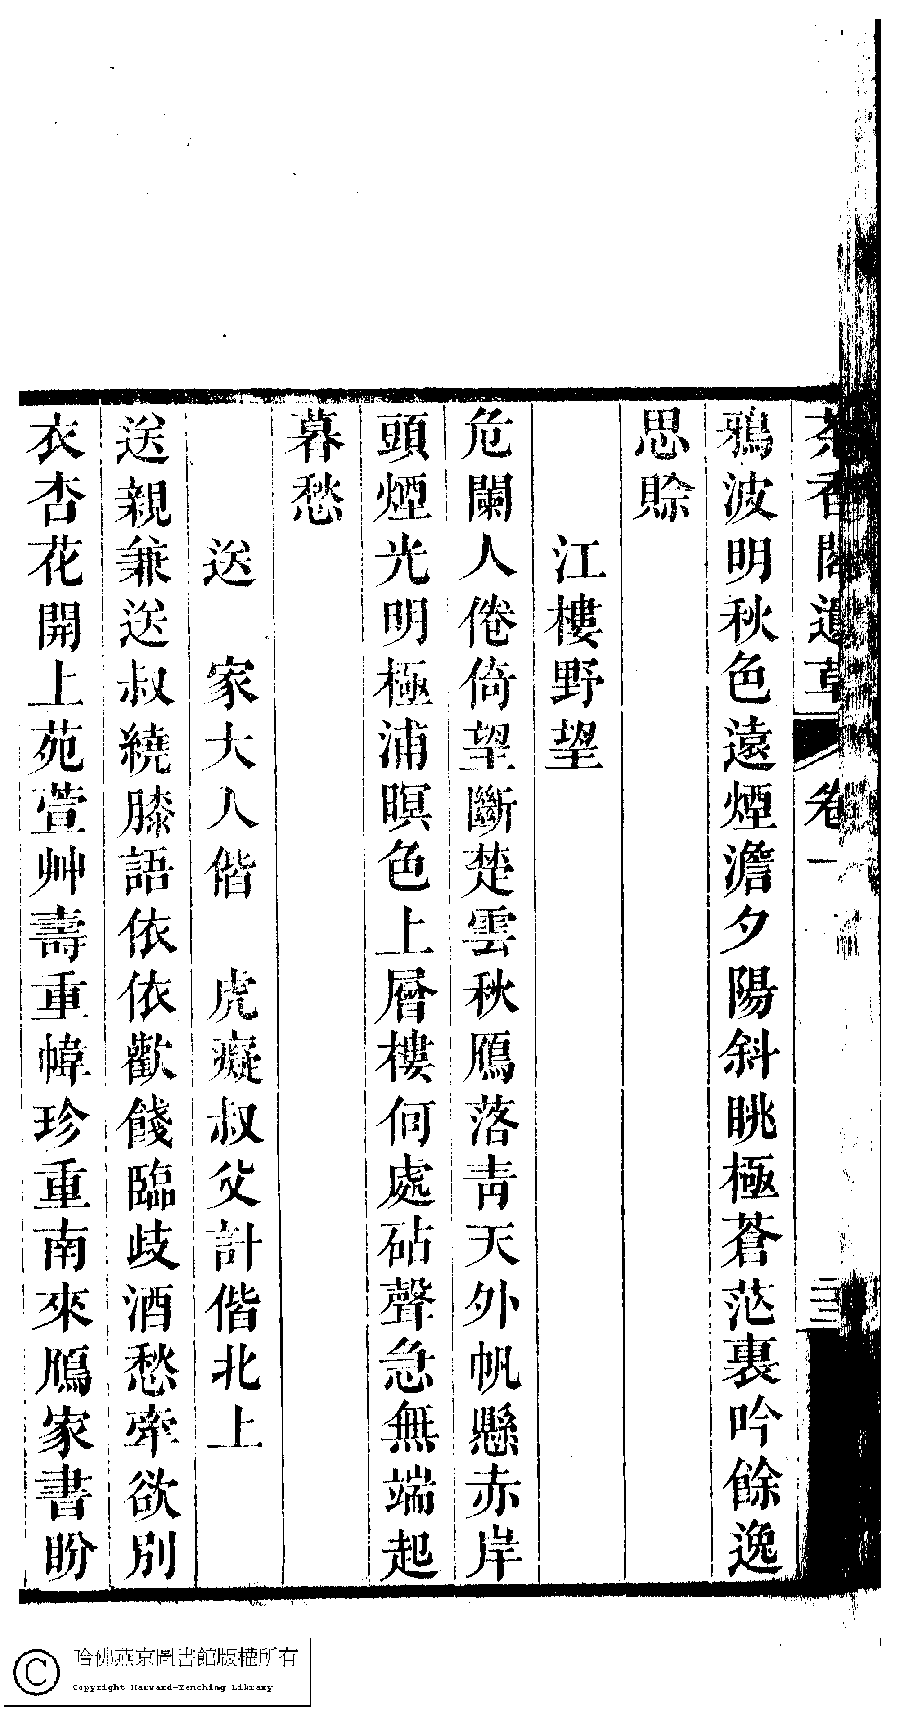 茶香閣遺草 卷一 三
鴉波明秋色遠煙澹夕陽斜眺極蒼茫裏吟餘逸
思賒
江樓野望
危闌人倦倚望斷楚雲秋鴈落青天外帆懸赤岸
頭煙光明極浦暝色上層樓何處砧聲急無端起
暮愁
送 家大人偕 虎癡叔父計偕北上
送親兼送叔繞膝語依依歡餞臨歧酒愁牽欲別
衣杏花開上苑萱艸壽重幃珍重南來鴈家書盼
哈佛燕京圖書館版權所有
Copyright Harvard-Yenching Library